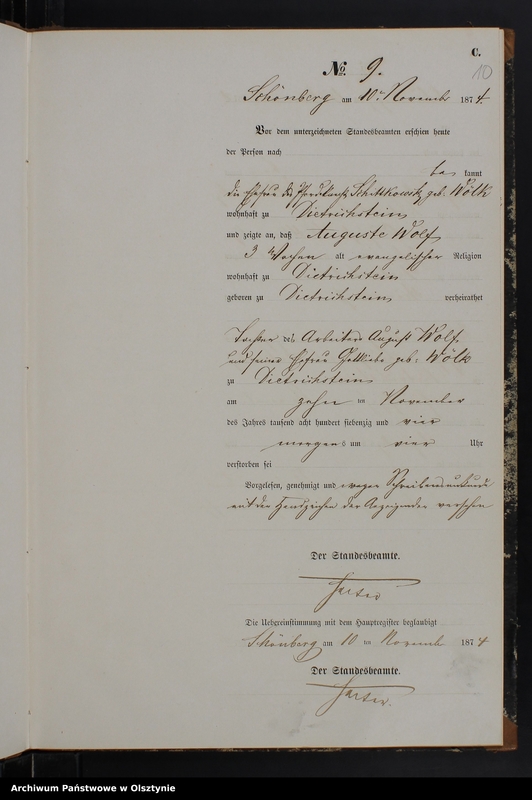 C.
10
No. 9.
Schönberg am 10ten November 1874
Vor dem unterzeichneten Standesbeamten erschien heute
der Person nach
be kannt
die Ehefrau des Schittkowsky geb. Wölk
wohnhaft zu Dietrichstein
und zeigte an, daß Auguste Wolf
3 Wochen alt evangelischer Religion
wohnhaft zu Dietrichstein
geboren zu Dietrichstein verheirathet
Tochter des Arbeiters August Wolf
und seiner Ehefrau Gottliebe geb: Wölk
zu Dietrichstein
am zehn ten November
des Jahres tausend acht hundert siebenzig und vier
morgens um vier Uhr
verstorben sei
Vorgelesen, genehmigt und wegen Schreibensunkunde
mit den Handzeichen der Anzeigenden versehen
Der Standesbeamte.
Die Uebereinstimmung mit dem Hauptregister beglaubigt
Schönberg am 10 ten November 1874
Der Standesbeamte.
Archiwum Państwowe w Olsztynie